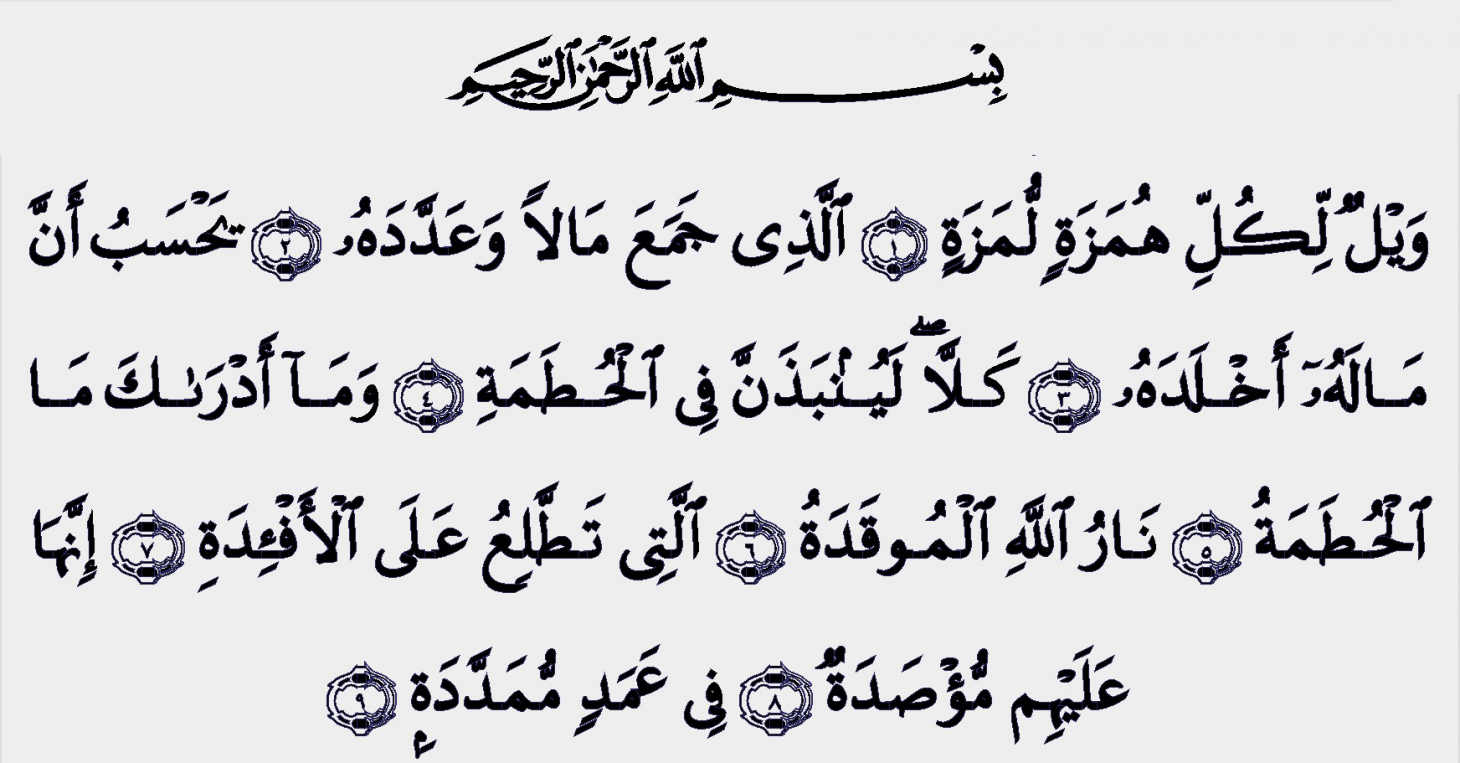 بِسْمِ ٱللَّهِ ٱلرَّحْمَٰنِ ٱلرَّحِيمِ
وَيْلٌ لِّكُلِّ هُمَزَةٍ لُّمَزَةٍ ١ ٱلَّذِى جَمَعَ مَالاً وَعَدَّدَهُۥ ٢ يَحْسَبُ أَنَّ
مَالَهُۥٓ أَخْلَدَهُۥ ٣ كَلَّا ۖ لَيُنۢبَذَنَّ فِى ٱلْحُطَمَةِ ٤ وَمَآ أَدْرَىٰكَ مَا
ٱلْحُطَمَةُ ٥ نَارُ ٱللَّهِ ٱلْمُوقَدَةُ ٦ ٱلَّتِى تَطَّلِعُ عَلَى ٱلْأَفْـِٔدَةِ ٧ إِنَّهَا
عَلَيْهِم مُّؤْصَدَةٌ ٨ فِى عَمَدٍ مُّمَدَّدَةٍۭ ٩